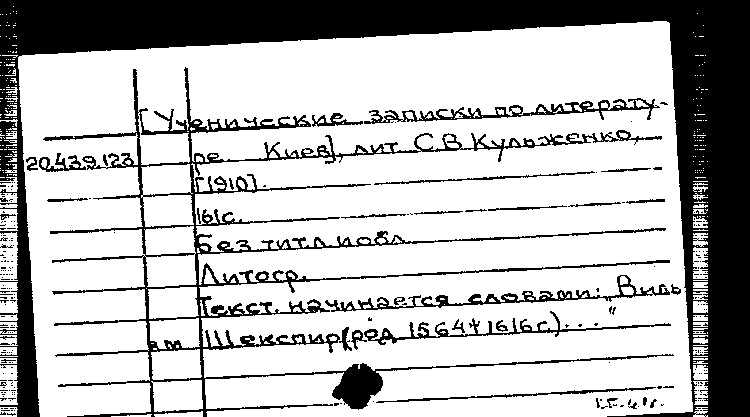 [Ученические записки по литерату-
20.439.123 ре. Киев], лит. С.В. Кульженко,
[1910].
161с.
Без титл. и обл.
Литогр.
Текст. начинается словами: „Виль
ям Шекспир (род 1564 † 1616 г.)..."